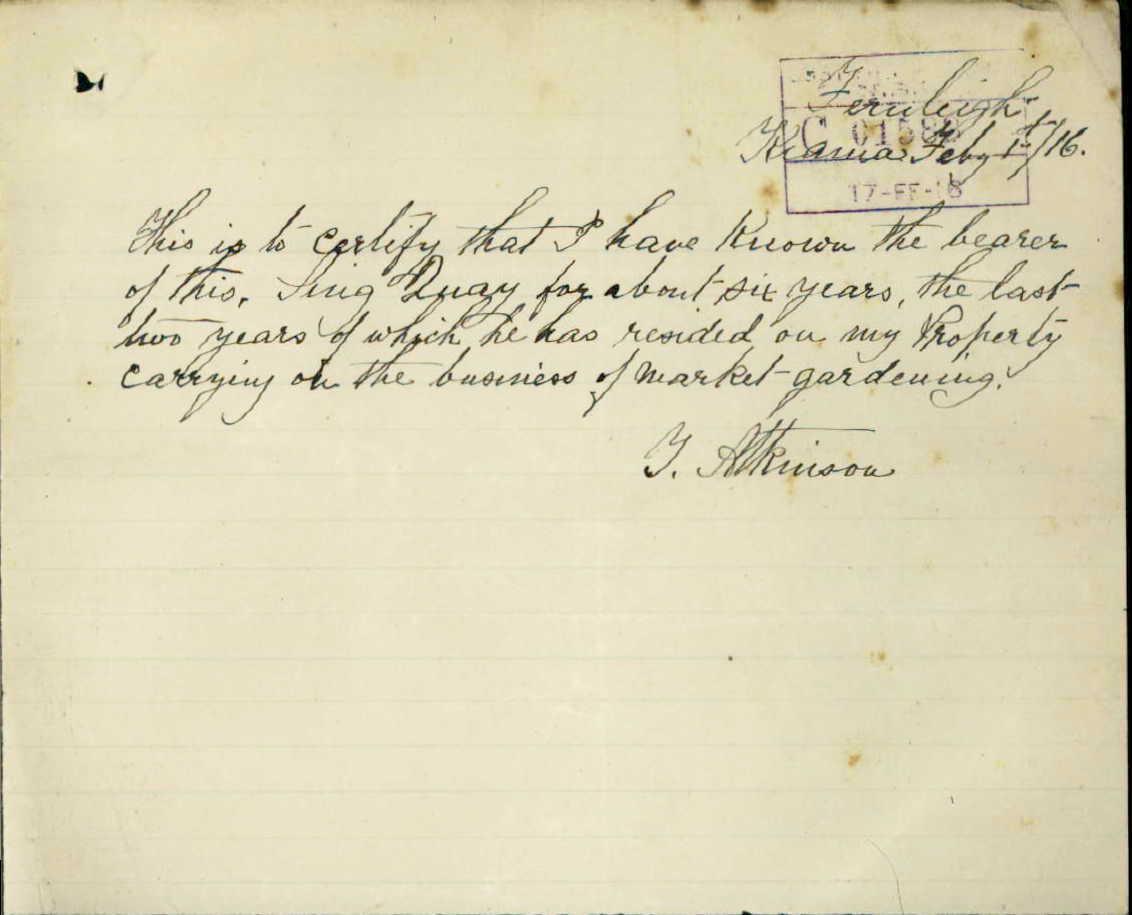 Fernleigh
Kiama Feby 1st/16.
C 01588
17-FE-16
This is to certify that I have Known the bearer
of this, Sing Quay for about six years, the last
two years of which he has resided on my Property
carrying on the business of market-gardening.
T. Atkinson